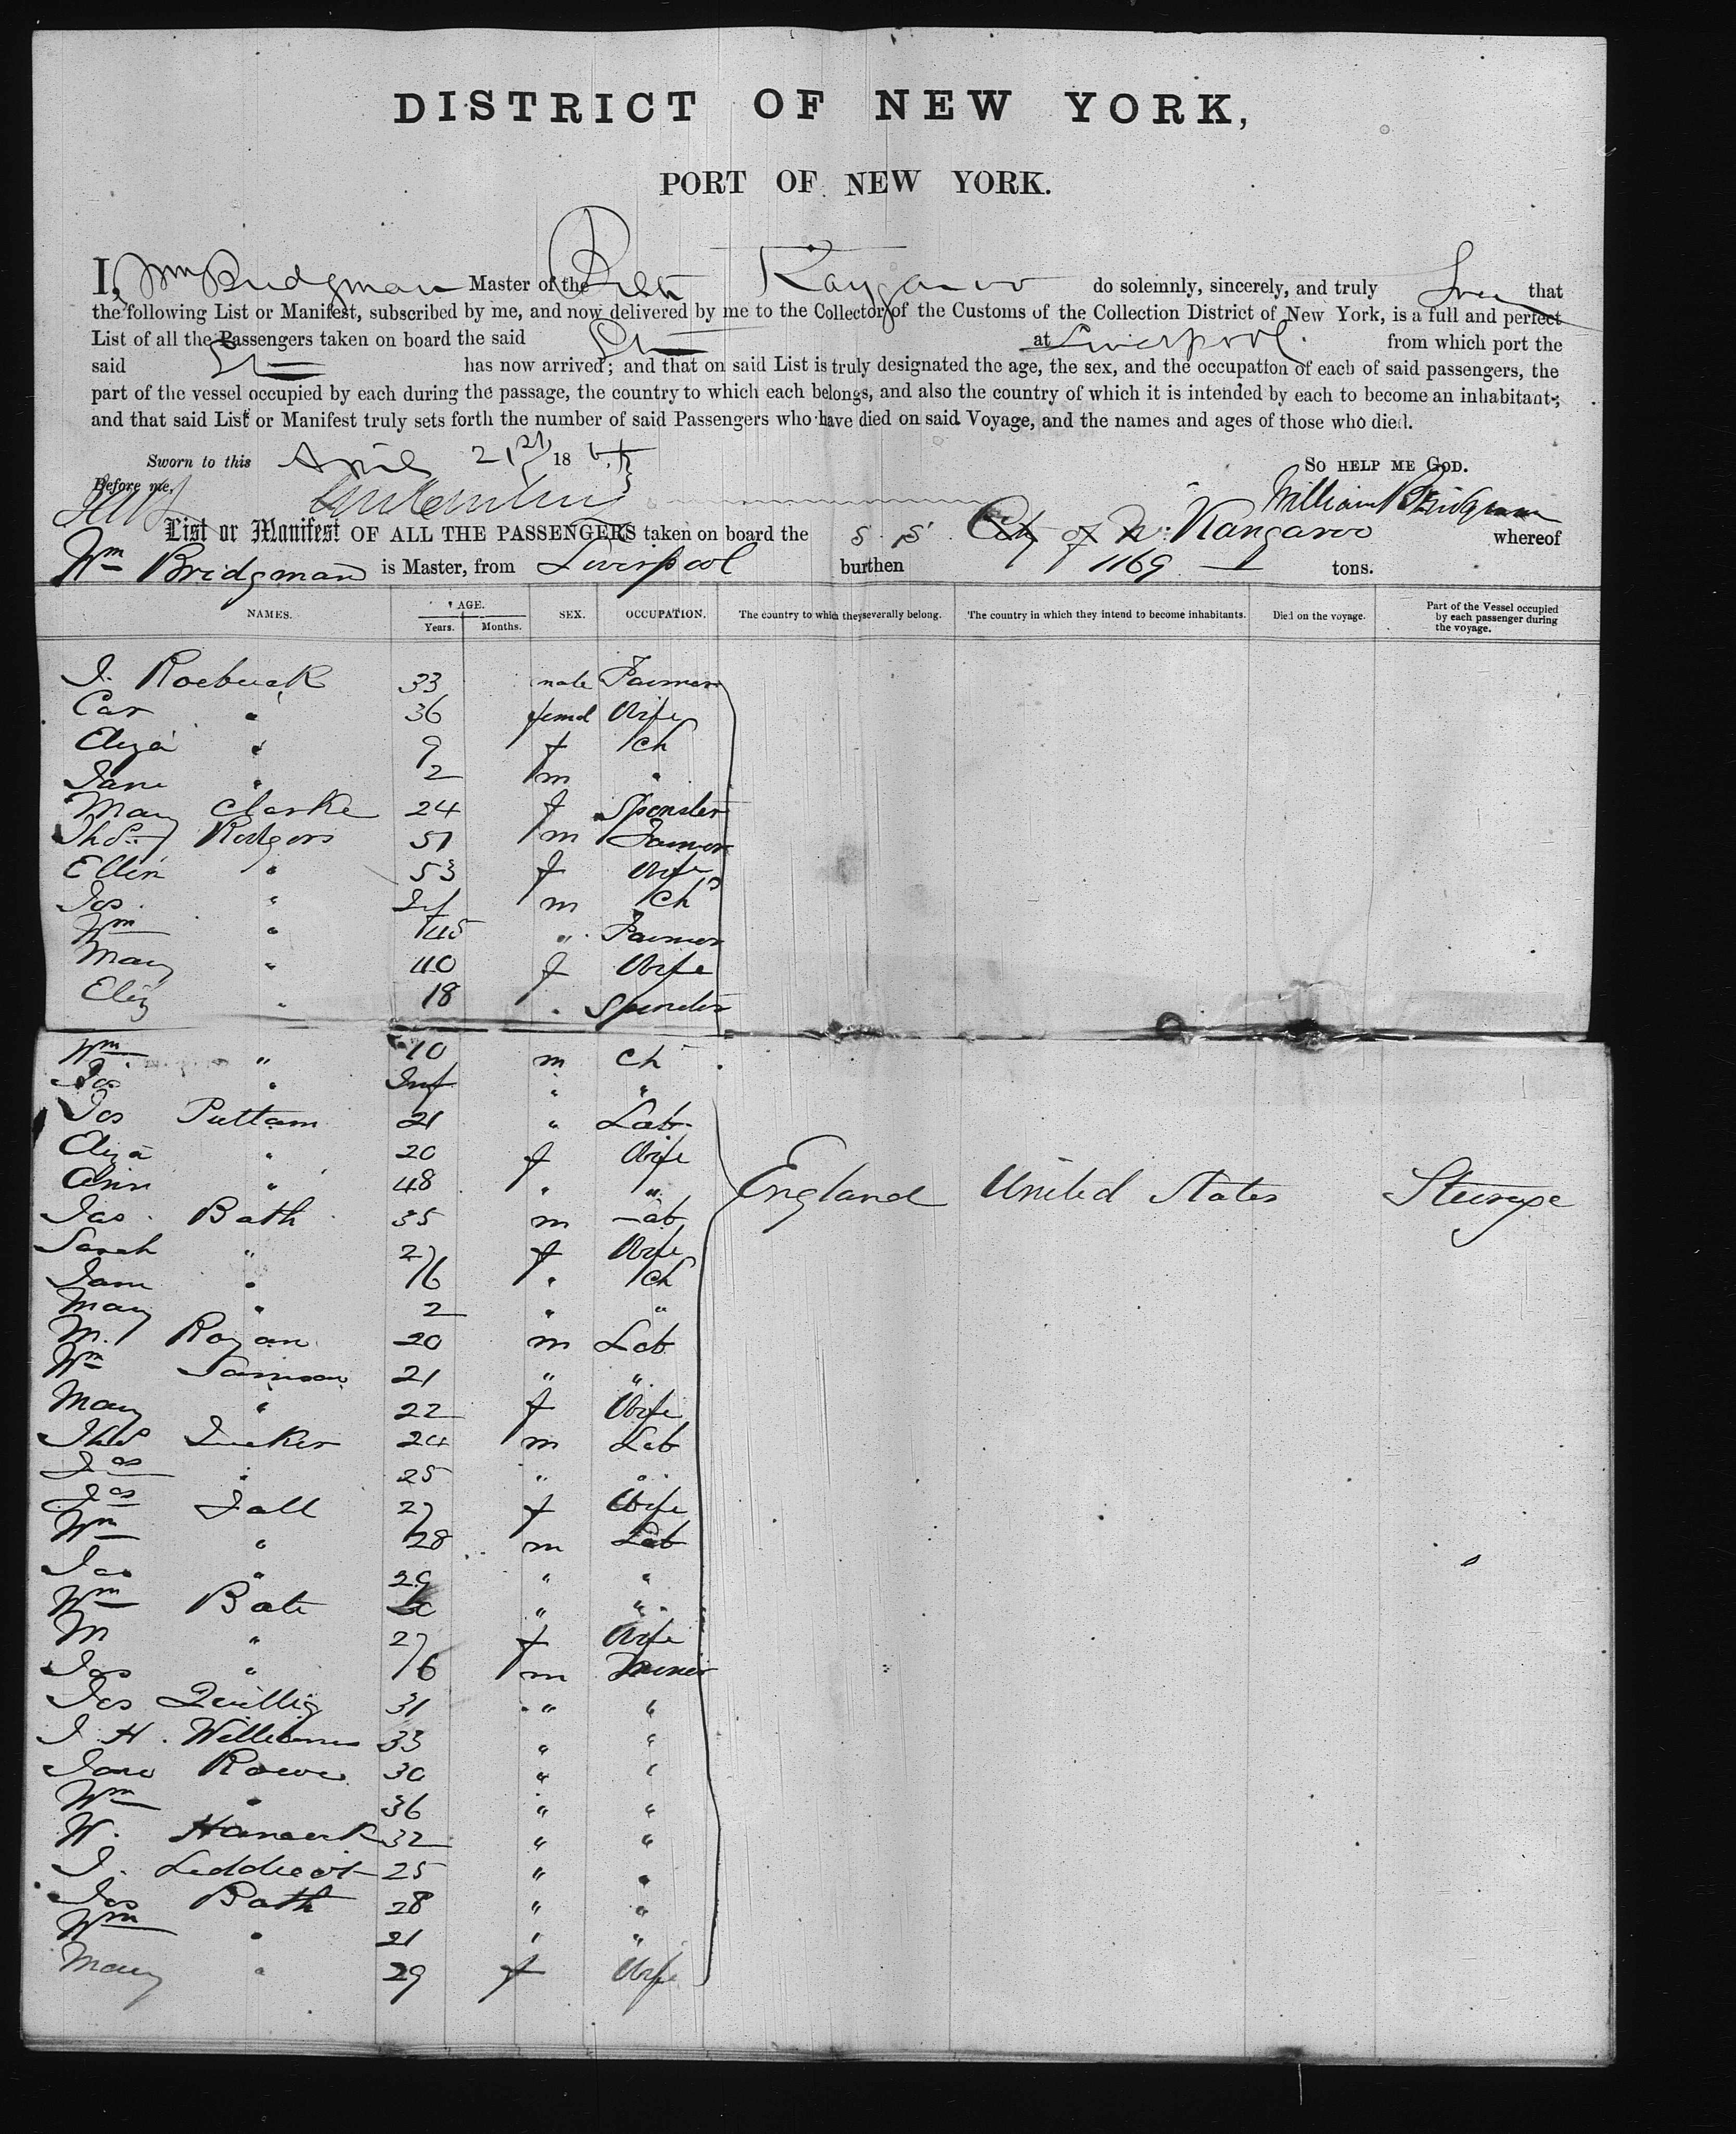 DISTRICT OF NEW YORK,
PORT OF NEW YORK.
I, Wm Bridgman Master of the Kangaroo do solemnly, sincerely, and truly that
the following List or Manifest, subscribed by me, and now delivered by me to the Collector of the Customs of the Collection District of New York, is a full and perfect
List of all the Passengers taken on board the said at Liverpool. from which port the
said has now arrived; and that on said List is truly designated the age, the sex, and the occupation of each of said passengers, the
part of the vessel occupied by each during the passage, the country to which each belongs, and also the country of which it is intended by each to become an inhabitant;
and that said List or Manifest truly sets forth the number of said Passengers who have died on said Voyage, and the names and ages of those who died.
Sworn to this April 21st 18 SO HELP ME GOD.
Before me, William Bridgman
List or Manifest OF ALL THE PASSENGERS taken on board the S. S. City of Kangaroo whereof
Wm Bridgman is Master, from Liverpool burthen 1169 tons.
NAMES. AGE. Years. Months. SEX. OCCUPATION. The country to which they severally belong. The country in which they intend to become inhabitants. Died on the voyage. Part of the Vessel occupied by each passenger during the voyage.
J. Roebuck 33 male Farmer
Car " 36 femal Wife
Eliza " 9 f Ch
Jane " 2 m "
Mary Clarke 24 f Spinster
Thos Rodgers 51 m Farmer
Ellen " 53 f Wife
Jos. " m Ch
Wm " 45 " Farmer
Mary " 40 f Wife
Eliz " 18 " Spinster
Wm " 10 m Ch
Jos " Inf " "
Jos Puttam 21 " Lab
Eliza " 20 f Wife
Ann " 48 " "
Jas. Bath 35 m Lab England United States Steerage
Sarah " 27 f Wife
Jane " 6 " Ch
Mary " 2 " "
M. Rogan 20 m Lab
Wm 21 " "
Mary " 22 f Wife
Thos Tucker 24 m Lab
Jas " 25 " "
Jas Jall 27 f Wife
Wm " 28 m Lab
Jas " 29 " "
Wm Bate " "
M " 27 f Wife
Jas " 6 m Miner
Jos 31 " "
J. H. Williams 33 " "
Rowe 30 " "
Wm " 36 " "
W. Hancock 32 " "
J. 25 " "
Jas Bath 28 " "
Wm " 21 " "
Mary " 29 f Wife